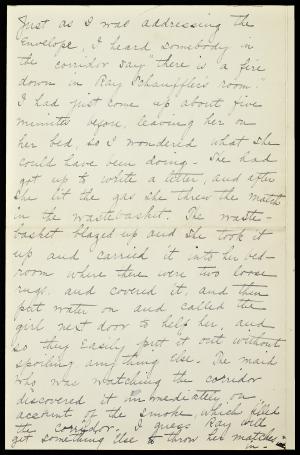 Just as I was addressing the
Envelope, I heard somebody in
the corridor say "there is a fire
down in Ray Schauffler's room."
I had just come up about five
minutes before, leaving her on
her bed, so I wondered what she
could have been doing. She had
got up to write a letter, and after
she lit the gas she threw the match
in the wastebasket. The waste-
basket blazed up and she took it
up and carried it into her bed-
room where there were two loose
rugs, and covered it, and then
put water on and called the
girl next door to help her, and
so they easily put it out without
spoiling anything else. The maid
who was watching the corridor
discovered it immediately, on
account of the smoke, which filled
the corridor. I guess Ray will
get something else to throw her matches
in.